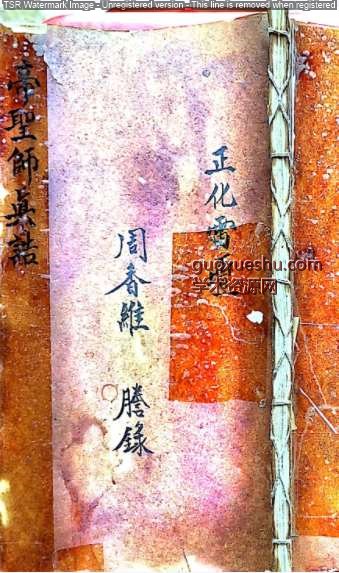 TSR Watermark Image - Unregistered version - This line is removed when registered
正化雷霆
周香維 謄錄
帝聖師真誥
guoxueshu.com
学术资源网